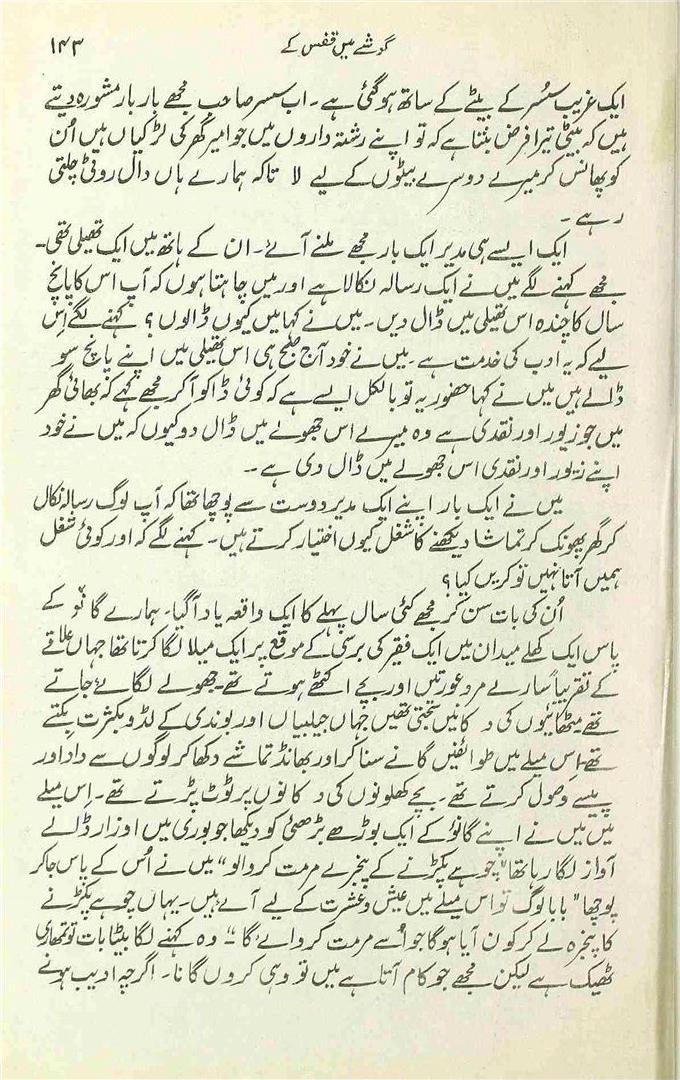 گوشے میں قفس کے ۱۴۳
ایک غریب سسُر کے بیٹے کے ساتھ ہوگئی ہے۔ اب سسر صاحب مجھے بار بار مشورہ دیتے
ہیں کہ بیٹی تیرا فرض بنتا ہے کہ تو اپنے رشتہ داروں میں جو امیر گھر کی لڑکیاں ہیں اُن
کو پھانس کر میرے دوسرے بیٹوں کے لیے لا تاکہ ہمارے ہاں دال روٹی چلتی
رہے۔
ایک ایسے ہی مدیر ایک بار مجھے ملنے آئے۔ ان کے ہاتھ میں ایک تھیلی تھی۔
مجھے کہنے لگے میں نے ایک رسالہ نکالا ہے اور میں چاہتا ہوں کہ آپ اس کا پانچ
سال کا چندہ اس تھیلی میں ڈال دیں۔ میں نے کہا میں کیوں ڈالوں؟ کہنے لگے اِس
لیے کہ یہ ادب کی خدمت ہے۔ میں نے خود آج صبح ہی اس تھیلی میں اپنے پانچ سو
ڈالے ہیں میں نے کہا حضور یہ تو بالکل ایسے ہے کہ کوئی ڈاکو آکر مجھے کہے کہ بھائی گھر
میں جو زیور اور نقدی ہے وہ میرے اس جھولے میں ڈال دو کیوں کہ میں نے خود
اپنے زیور اور نقدی اس جھولے میں ڈال دی ہے۔
میں نے ایک بار اپنے ایک مدیر دوست سے پوچھا تھا کہ آپ لوگ رسالہ نکال
کر گھر پھونک کر تماشا دیکھنے کا شغل کیوں اختیار کرتے ہیں۔ کہنے لگے کہ اور کوئی شغل
ہمیں آتا نہیں تو کریں کیا؟
اُن کی بات سن کر مجھے کئی سال پہلے کا ایک واقعہ یاد آگیا۔ ہمارے گانوٗ کے
پاس ایک کھلے میدان میں ایک فقیر کی برسی کے موقع پر ایک میلا لگا کرتا تھا جہاں علاقے
کے تقریباً سارے مرد عورتیں اور بچے اکٹھے ہوتے تھے۔ جھولے لگائے جاتے
تھے مٹھائیوں کی دکانیں سجتی تھیں جہاں جیلبیاں اور بوندی کے لڈو بکثرت بکتے
تھے۔ اِس میلے میں طوائفیں گانے سنا کر اور بھانڈ تماشے دکھا کر لوگوں سے داد اور
پیسے وصول کرتے تھے۔ بچے کھلونوں کی دکانوں پر ٹوٹ پڑتے تھے۔ اِس میلے
میں میں نے اپنے گانوٗ کے ایک بوڑھے بڑھئی کو دیکھا جو بوری میں اوزار ڈالے
آواز لگا رہا تھا "چوہے پکڑنے کے پنجرے مرمت کروالو" میں نے اُس کے پاس جاکر
پوچھا "بابا لوگ تو اس میلے میں عیش و عشرت کے لیے آئے ہیں۔ یہاں چوہے پکڑنے
کا پنجرہ لے کر کون آیا ہوگا جو اُسے مرمت کروائے گا"۔ وہ کہنے لگا بیٹا بات تو تمھاری
ٹھیک ہے لیکن مجھے جو کام آتا ہے میں تو وہی کروں گا نا۔ اگرچہ ادیب ہونے